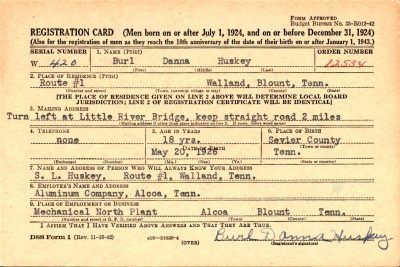 FORM APPROVED
Budget Bureau No. 33-R012-42
REGISTRATION CARD (Men born on or after July 1, 1924, and on or before December 31, 1924)
(Also for the registration of men as they reach the 18th anniversary of the date of their birth on or after January 1, 1943.)
SERIAL NUMBER 1. NAME (Print) ORDER NUMBER
W 420 Burl Danna Huskey 12534
(First) (Middle) (Last)
2. PLACE OF RESIDENCE (Print)
Route #1 Walland, Blount, Tenn.
(Number and street) (Town, township, village, or city) (County) (State)
[THE PLACE OF RESIDENCE GIVEN ON LINE 2 ABOVE WILL DETERMINE LOCAL BOARD
JURISDICTION; LINE 2 OF REGISTRATION CERTIFICATE WILL BE IDENTICAL]
3. MAILING ADDRESS
Turn left at Little River Bridge, keep straight road 2 miles
(Mailing address if other than place indicated on line 2. If same, insert word same)
4. TELEPHONE 5. AGE IN YEARS 6. PLACE OF BIRTH
none 18 yrs. Sevier County
DATE OF BIRTH (Town or county)
May 20, 1925 Tenn.
(Exchange) (Number) (Mo.) (Day) (Yr.) (State or country)
7. NAME AND ADDRESS OF PERSON WHO WILL ALWAYS KNOW YOUR ADDRESS
S. L. Huskey, Route #1, Walland, Tenn.
8. EMPLOYER'S NAME AND ADDRESS
Aluminum Company, Alcoa, Tenn.
9. PLACE OF EMPLOYMENT OR BUSINESS
Mechanical North Plant Alcoa Blount Tenn.
(Number and street or R. F. D. number) (Town) (County) (State)
I AFFIRM THAT I HAVE VERIFIED ABOVE ANSWERS AND THAT THEY ARE TRUE.
DSS Form 1 (Rev. 11-16-42) (OVER) Burl Danna Huskey
(Registrant's signature)